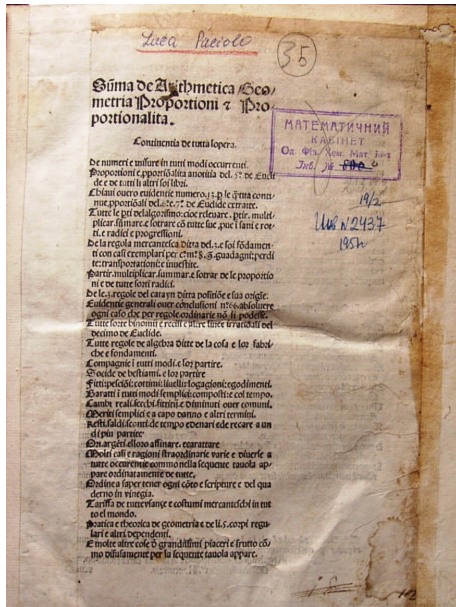 Luca Paciolo
35
Sūma de Arithmetica Geo
metria Proportioni ⁊ Pro
portionalita.
Continentia de tutta lopera.
МАТЕМАТИЧНИЙ
КАБІНЕТ
Од. Фіз. Хем. Мат. Ін-т
Інв. №
19/2
Инв N 2437
De numeri e misure in tutti modi occurrenti.
Proportioni e ꝓportiōalita anotitia del. 5º. de Eucli
de e de tutti li altri soi libri.
Chiaui ouero euidentie numero. 13. ꝑ le q̄tita conti
nue ꝓportiōali del. 6º e. 7º. de Euclide extratte.
Tutte le pti delalgorismo: cioe releuare. ptir. multi
plicar. sūmare. e sotrare cō tutte sue ꝓue i sani e rot
ti. e radici e progressioni.
De la regola mercantesca ditta del. 3. e soi fōdamen
ti con casi exemplari per guadagni: perdi
te: transportationi: e inuestite.
Partir. multiplicar. summar. e sotrar de le proportio
ni e de tutte sorti radici.
De le. 3. regole del catayn ditta positiōe e sua origie.
Euidentie generali ouer conclusioni nº 66. absoluere
ogni caso che per regole ordinarie nō si podesse.
Tutte sorte binomii e recisi e altre linee irratiōali del
decimo de Euclide.
Tutte regole de algebra ditte de la cosa e lor fabri
che e fondamenti.
Compagnie i tutti modi. e lor partire.
Socide de bestiami. e lor partire
Fitti: pesciōi: cottimi: liuelli: logagioni: e godimenti.
Baratti i tutti modi semplici: composti: e col tempo.
Cambi reali. secchi. fittitii. e diminuti ouer comuni.
Meriti semplici e a capo danno e altri termini.
Resti. saldi. sconti. de tempo e denari e de recare a un
di piu partite.
Ori. argēti. e lloro affinare. e carattare
Molti casi e ragioni straordinarie varie e diuerse a
tutte occurentie commo nella sequente tauola ap
pare ordinatamente de tutte.
Ordine a saper tener ogni cōto e scripture e del qua
derno in vinegia.
Tariffa de tutte vsanze e costumi mercanteschi in tut
to el mondo.
Pratica e theorica de geometria e de li. 5. corpi regu
lari e altri dependenti.
E molte altre cose de grandissimi piaceri e frutto cō
mo difusamente per la sequente tauola appare.